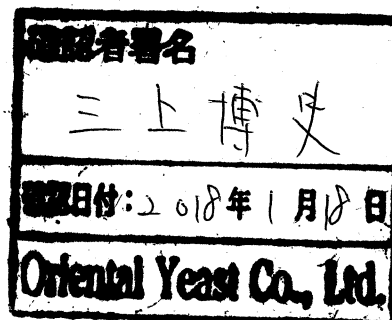 確認者署名
三上博史
確認日付:2018年1月18日
Oriental Yeast Co., Ltd.